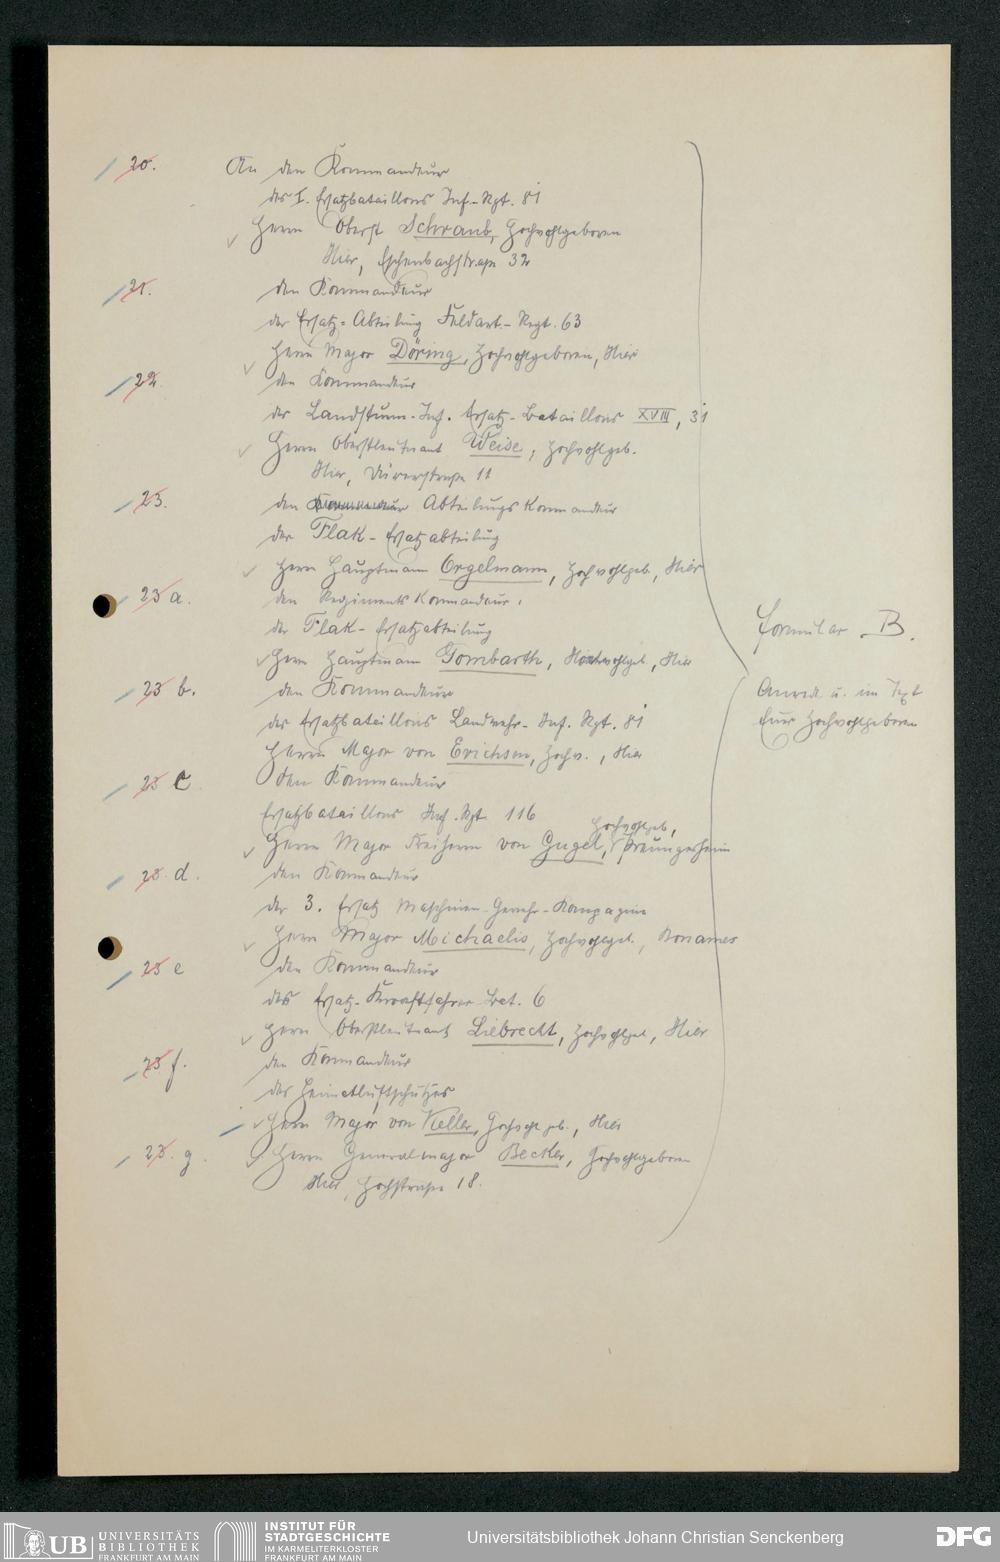 20. An den Kommandeur
des I. Ersatzbataillons Inf.-Rgt. 81
Herrn Oberst Schraub, Hochwohlgeboren
Hier, Eschenbachstraße 32
21. den Kommandeur
der Ersatz-Abteilung Feldart.-Regt. 63
Herrn Major Döring, Hochwohlgeboren, Hier
22. den Kommandeur
des Landsturm-Inf. Ersatz-Bataillons XVIII, 31
Herrn Oberstleutnant Weise, Hochwohlgeb.
Hier, Dürerstraße 11
23. den Kommandeur Abteilungskommandeur
der Flak-Ersatzabteilung
Herrn Hauptmann Orgelmann, Hochwohlgeb., Hier
23 a. den Regimentskommandeur
der Flak-Ersatzabteilung
Herrn Hauptmann Gombarth, Hochwohlgeb., Hier
Formular B.
23 b. den Kommandeur
des Ersatzbataillons Landwehr-Inf. Rgt. 81
Herrn Major von Erichsen, Hochw., Hier
Anrede u. im Text
Euer Hochwohlgeboren
23 c den Kommandeur
Ersatzbataillons Inf.Rgt 116
Herrn Major Freiherrn von Gugel, Hochwohlgeb., Preungesheim
23 d. den Kommandeur
der 3. Ersatz Maschinen-Gewehr-Kompagnie
Herrn Major Michaelis, Hochwohlgeb., Bonames
23 e den Kommandeur
des Ersatz-Kraftfahrer-Bat. 6
Herrn Oberstleutnant Liebrecht, Hochwohlgeb., Hier
23 f. den Kommandeur
des Heimatluftschutzes
Herrn Major von Keller, Hochwohlgeb., Hier
23. g. Herrn Generalmajor Becker, Hochwohlgeboren
Hier, Hochstraße 18.
UB UNIVERSITÄTS
BIBLIOTHEK
FRANKFURT AM MAIN
INSTITUT FÜR
STADTGESCHICHTE
IM KARMELITERKLOSTER
FRANKFURT AM MAIN
Universitätsbibliothek Johann Christian Senckenberg
DFG